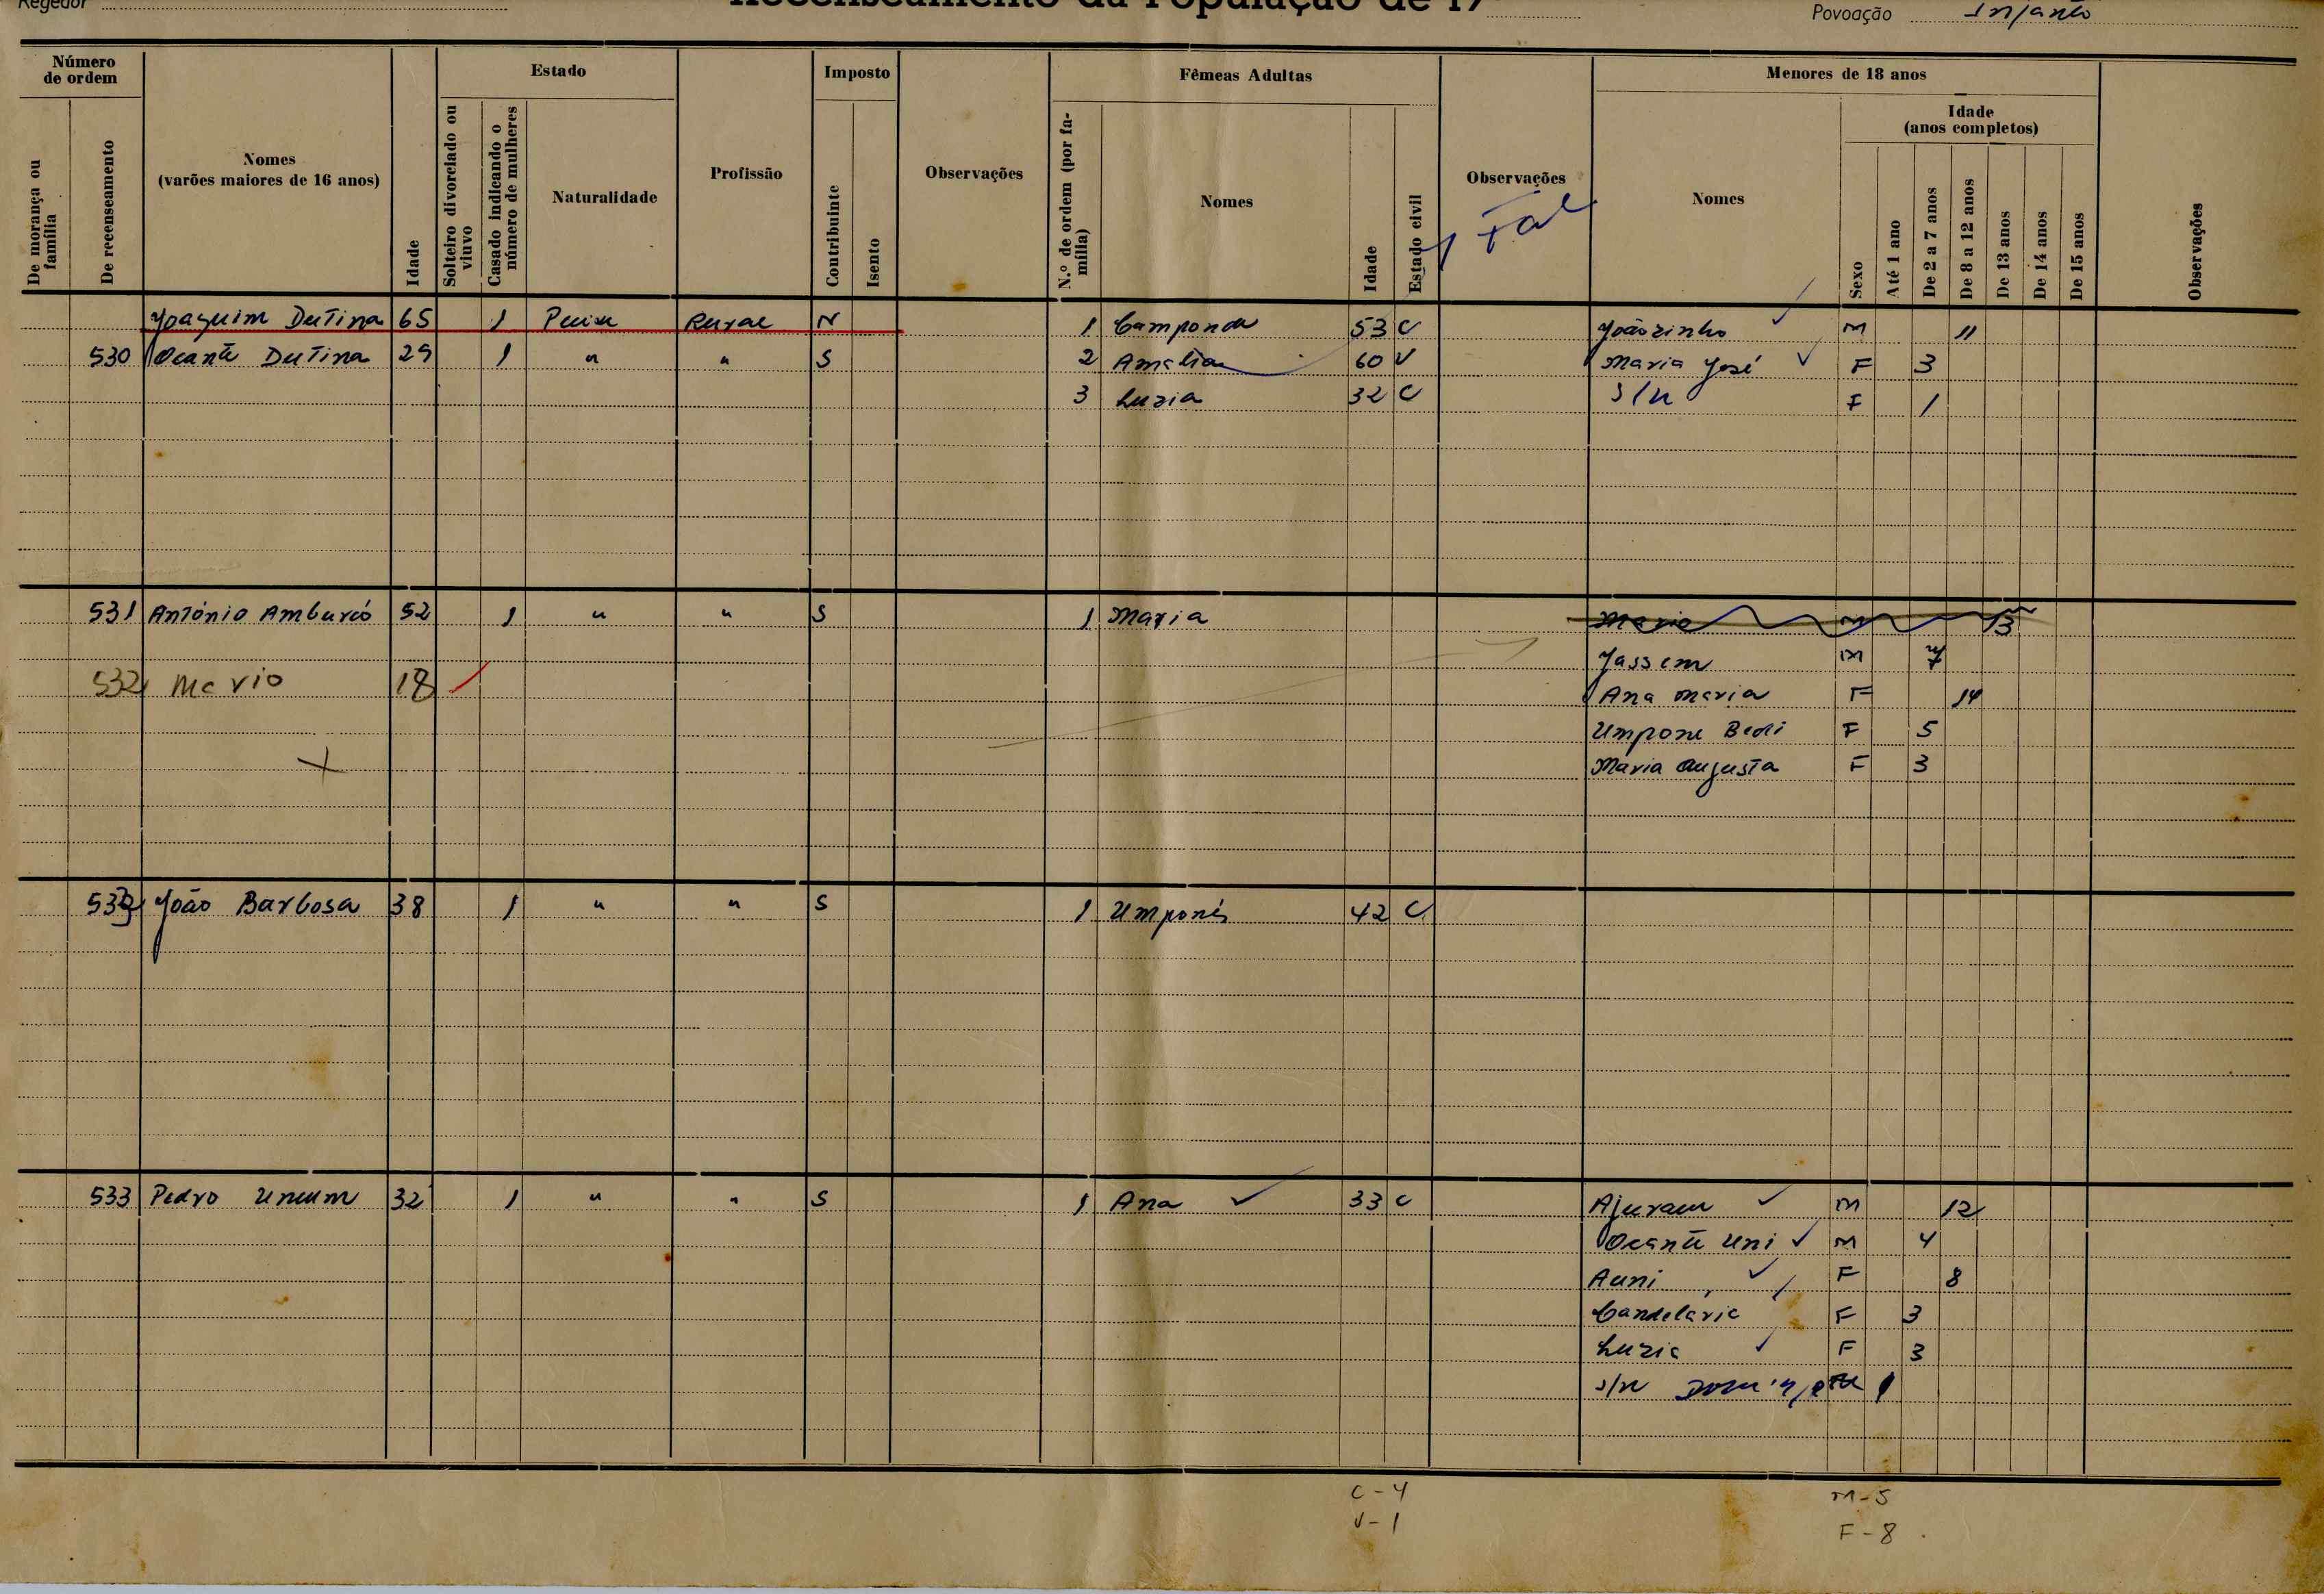 Regedor
Recenseamento da População de 19
Povoação
Número de ordem
De morança ou família
De recenseamento
Nomes
(varões maiores de 16 anos)
Idade
Estado
Solteiro divorciado ou viuvo
Casado indicando o número de mulheres
Naturalidade
Profissão
Imposto
Contribuinte
Isento
Observações
Fêmeas Adultas
N.º de ordem (por família)
Nomes
Idade
Estado civil
Observações
Menores de 18 anos
Nomes
Sexo
Idade
(anos completos)
Até 1 ano
De 2 a 7 anos
De 8 a 12 anos
De 13 anos
De 14 anos
De 15 anos
Observações
Joaquim Dutina 65 1 Rural N 1 Camponda 53 C Joãozinho M 11
530 Ocante Dutina 29 1 " " S 2 Amelia 60 V Maria José F 3
3 Luzia 32 C S/N F 1
531 António Amburcó 52 1 " " S 1 Maria Mario M 13
Jassem M 7
532 Mario 18 Ana Maria F 14
Umpone Bedi F 5
Maria Augusta F 3
533 João Barbosa 38 1 " " S 1 Umponés 42 C
533 Pedro 32 1 " " S 1 Ana 33 C M 12
Ocante Uni M 4
Auni F 8
Candelária F 3
Luzia F 3
S/N 1
C-4 M-5
V-1 F-8